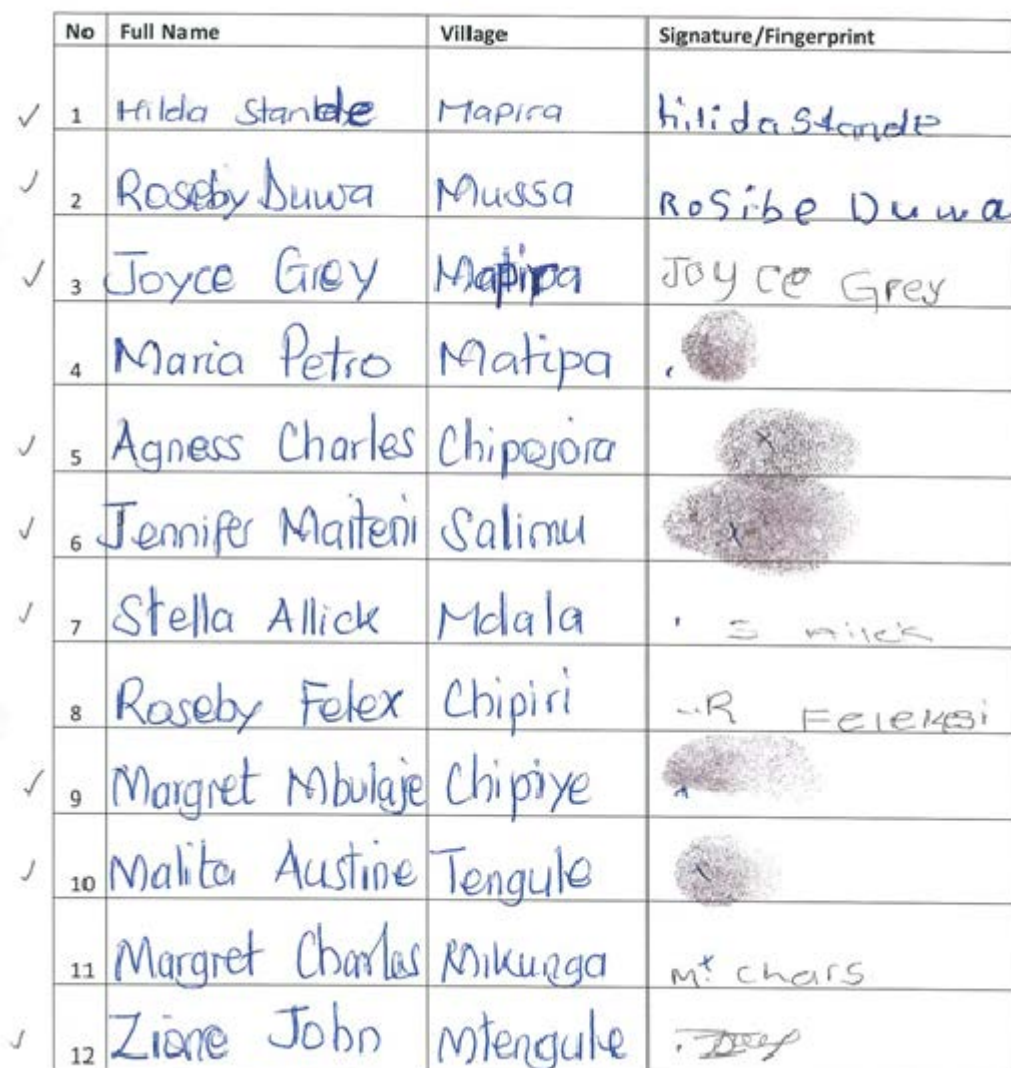 No Full Name Village Signature/Fingerprint
✓ 1 Hilda Stande Mapira hilida Stande
✓ 2 Roseby Duwa Mussa RoSibe Duwa
✓ 3 Joyce Grey JOYCE Grey
4 Maria Petro Matipa
✓ 5 Agness Charles
✓ 6 Jennifer Maiteni Salimu
✓ 7 Stella Allick Mdala S
8 Roseby Felex Chipiri R FELEKesi
✓ 9 Margret Mbulaje Chipiye
✓ 10 Malita Austine Tengule
11 Margret Charles Mikunga M. Chars
✓ 12 Zione John Mtengule